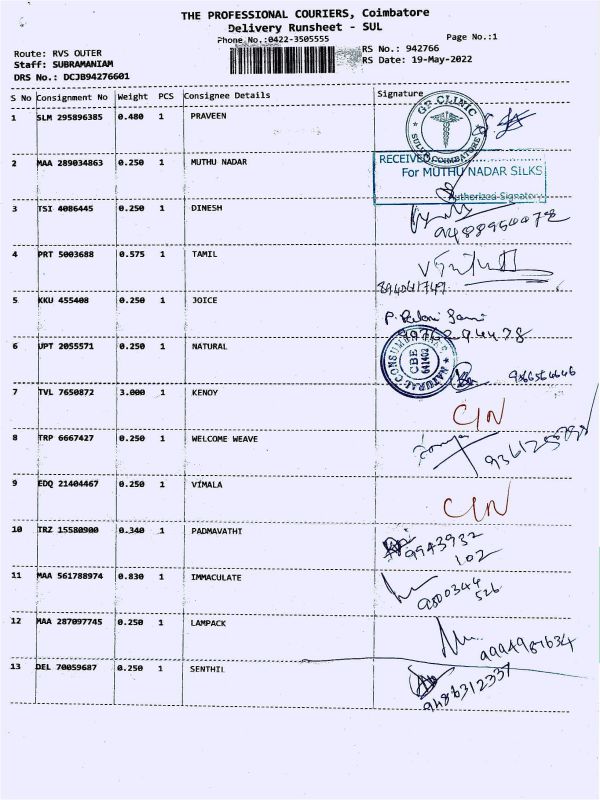 THE PROFESSIONAL COURIERS, Coimbatore
Delivery Runsheet - SUL
Phone No.:0422-3505555
Page No.:1
Route: RVS OUTER
RS No.: 942766
Staff: SUBRAMANIAM
RS Date: 19-May-2022
DRS No.: DCJB94276601
S No Consignment No Weight PCS Consignee Details Signature
1 SLM 295896385 0.480 1 PRAVEEN
G.P. CLINIC
SULUR COIMBATORE
2 MAA 289034863 0.250 1 MUTHU NADAR
RECEIVED
For MUTHU NADAR SILKS
Authorized Signatory
3 TSI 4086445 0.250 1 DINESH
9488950078
4 PRT 5003688 0.575 1 TAMIL
5 KKU 455408 0.250 1 JOICE
6 UPT 2055571 0.250 1 NATURAL
NATURAL CONSUMER CARE
CBE
641402
7 TVL 7650872 3.000 1 KENOY
CIN
8 TRP 6667427 0.250 1 WELCOME WEAVE
9 EDQ 21404467 0.250 1 VIMALA
CIN
10 TRZ 15580900 0.340 1 PADMAVATHI
9943932
102
11 MAA 561788974 0.830 1 IMMACULATE
9500344
526
12 MAA 287097745 0.250 1 LAMPACK
13 DEL 70059687 0.250 1 SENTHIL
9486312337